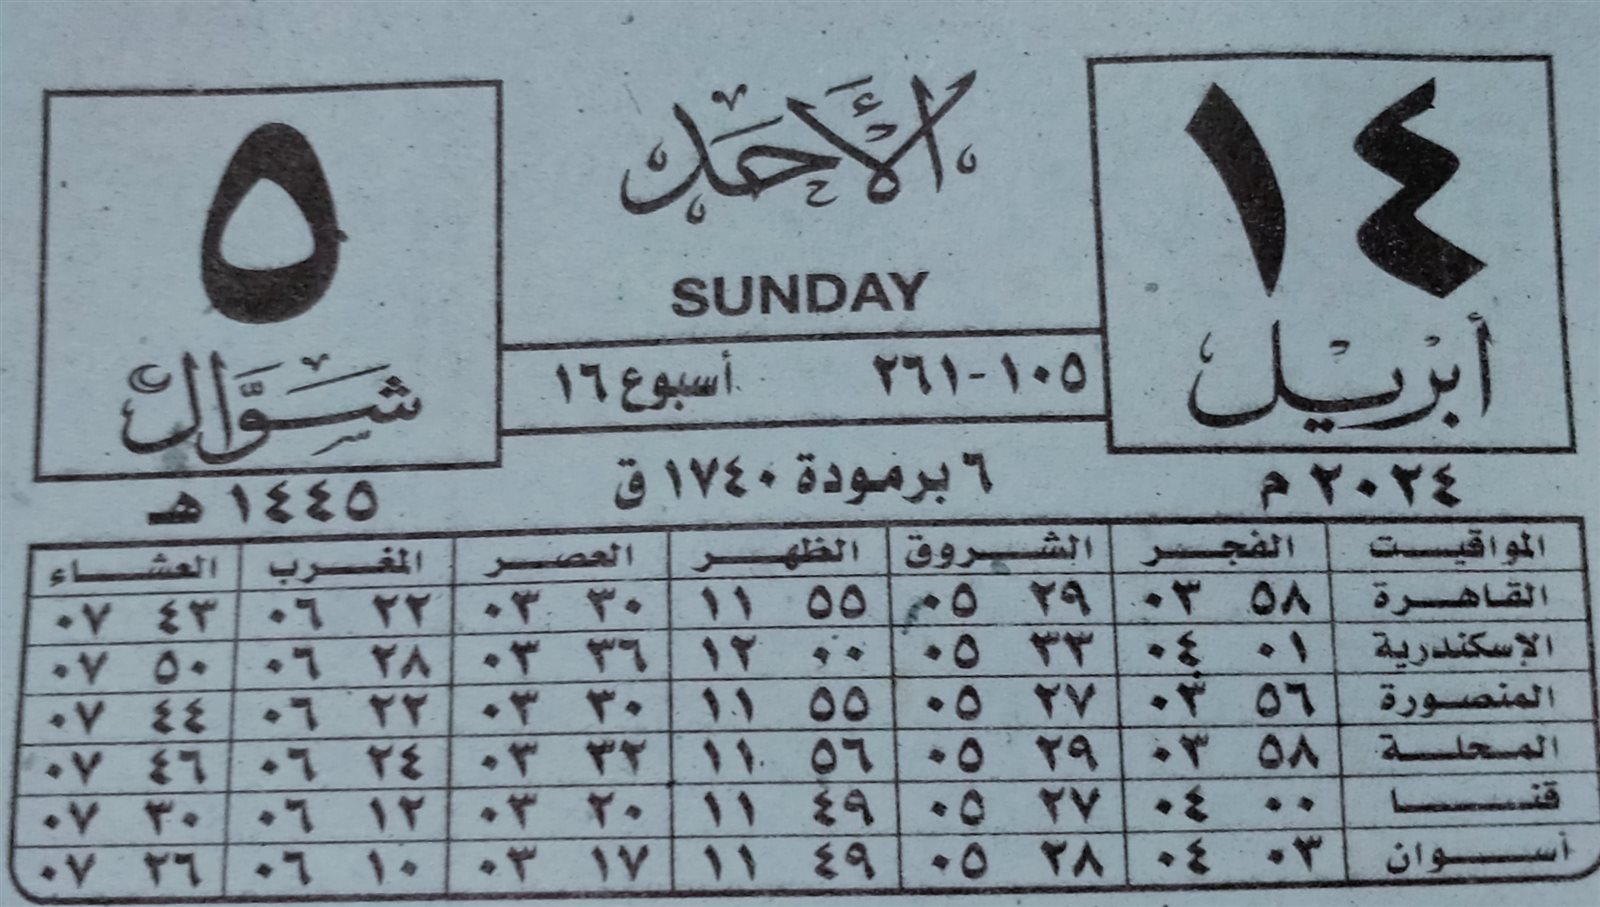 ١٤
أبريل
٢٠٢٤ م
الأحد
SUNDAY
١٠٥-٢٦١ أسبوع ١٦
٦ برمودة ١٧٤٠ ق
٥
شوال
١٤٤٥ هـ
المواقيت الفجر الشروق الظهر العصر المغرب العشاء
القاهرة ٥٨ ٠٣ ٢٩ ٠٥ ٥٥ ١١ ٣٠ ٠٣ ٢٢ ٠٦ ٤٣ ٠٧
الإسكندرية ٠١ ٠٤ ٣٣ ٠٥ ٠٠ ١٢ ٣٦ ٠٣ ٢٨ ٠٦ ٥٠ ٠٧
المنصورة ٥٦ ٠٣ ٢٧ ٠٥ ٥٥ ١١ ٣٠ ٠٣ ٢٢ ٠٦ ٤٤ ٠٧
المحلة ٥٨ ٠٣ ٢٩ ٠٥ ٥٦ ١١ ٣٢ ٠٣ ٢٤ ٠٦ ٤٦ ٠٧
قنا ٠٠ ٠٤ ٢٧ ٠٥ ٤٩ ١١ ٢٠ ٠٣ ١٢ ٠٦ ٣٠ ٠٧
أسوان ٠٣ ٠٤ ٢٨ ٠٥ ٤٩ ١١ ١٧ ٠٣ ١٠ ٠٦ ٢٦ ٠٧